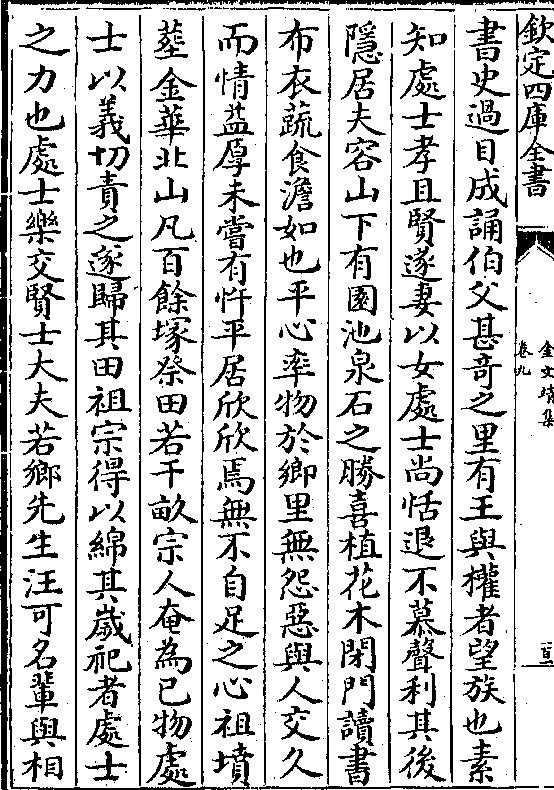 欽定四庫全書
金文靖集
卷九
書史過目成誦伯父甚竒之里有王與權者望族也素
知處士孝且賢遂妻以女處士尚恬退不慕聲利其後
隱居夫容山下有園池泉石之勝喜植花木閉門讀書
布衣蔬食澹如也平心率物於鄉里無怨惡與人交久
而情益厚未嘗有忤平居欣欣焉無不自足之心祖墳
塟金華北山凡百餘塚祭田若干畝宗人奄為已物處
士以義切責之遂歸其田祖宗得以綿其歲祀者處士
之力也處士樂交賢士大夫若鄉先生汪可名輩與相